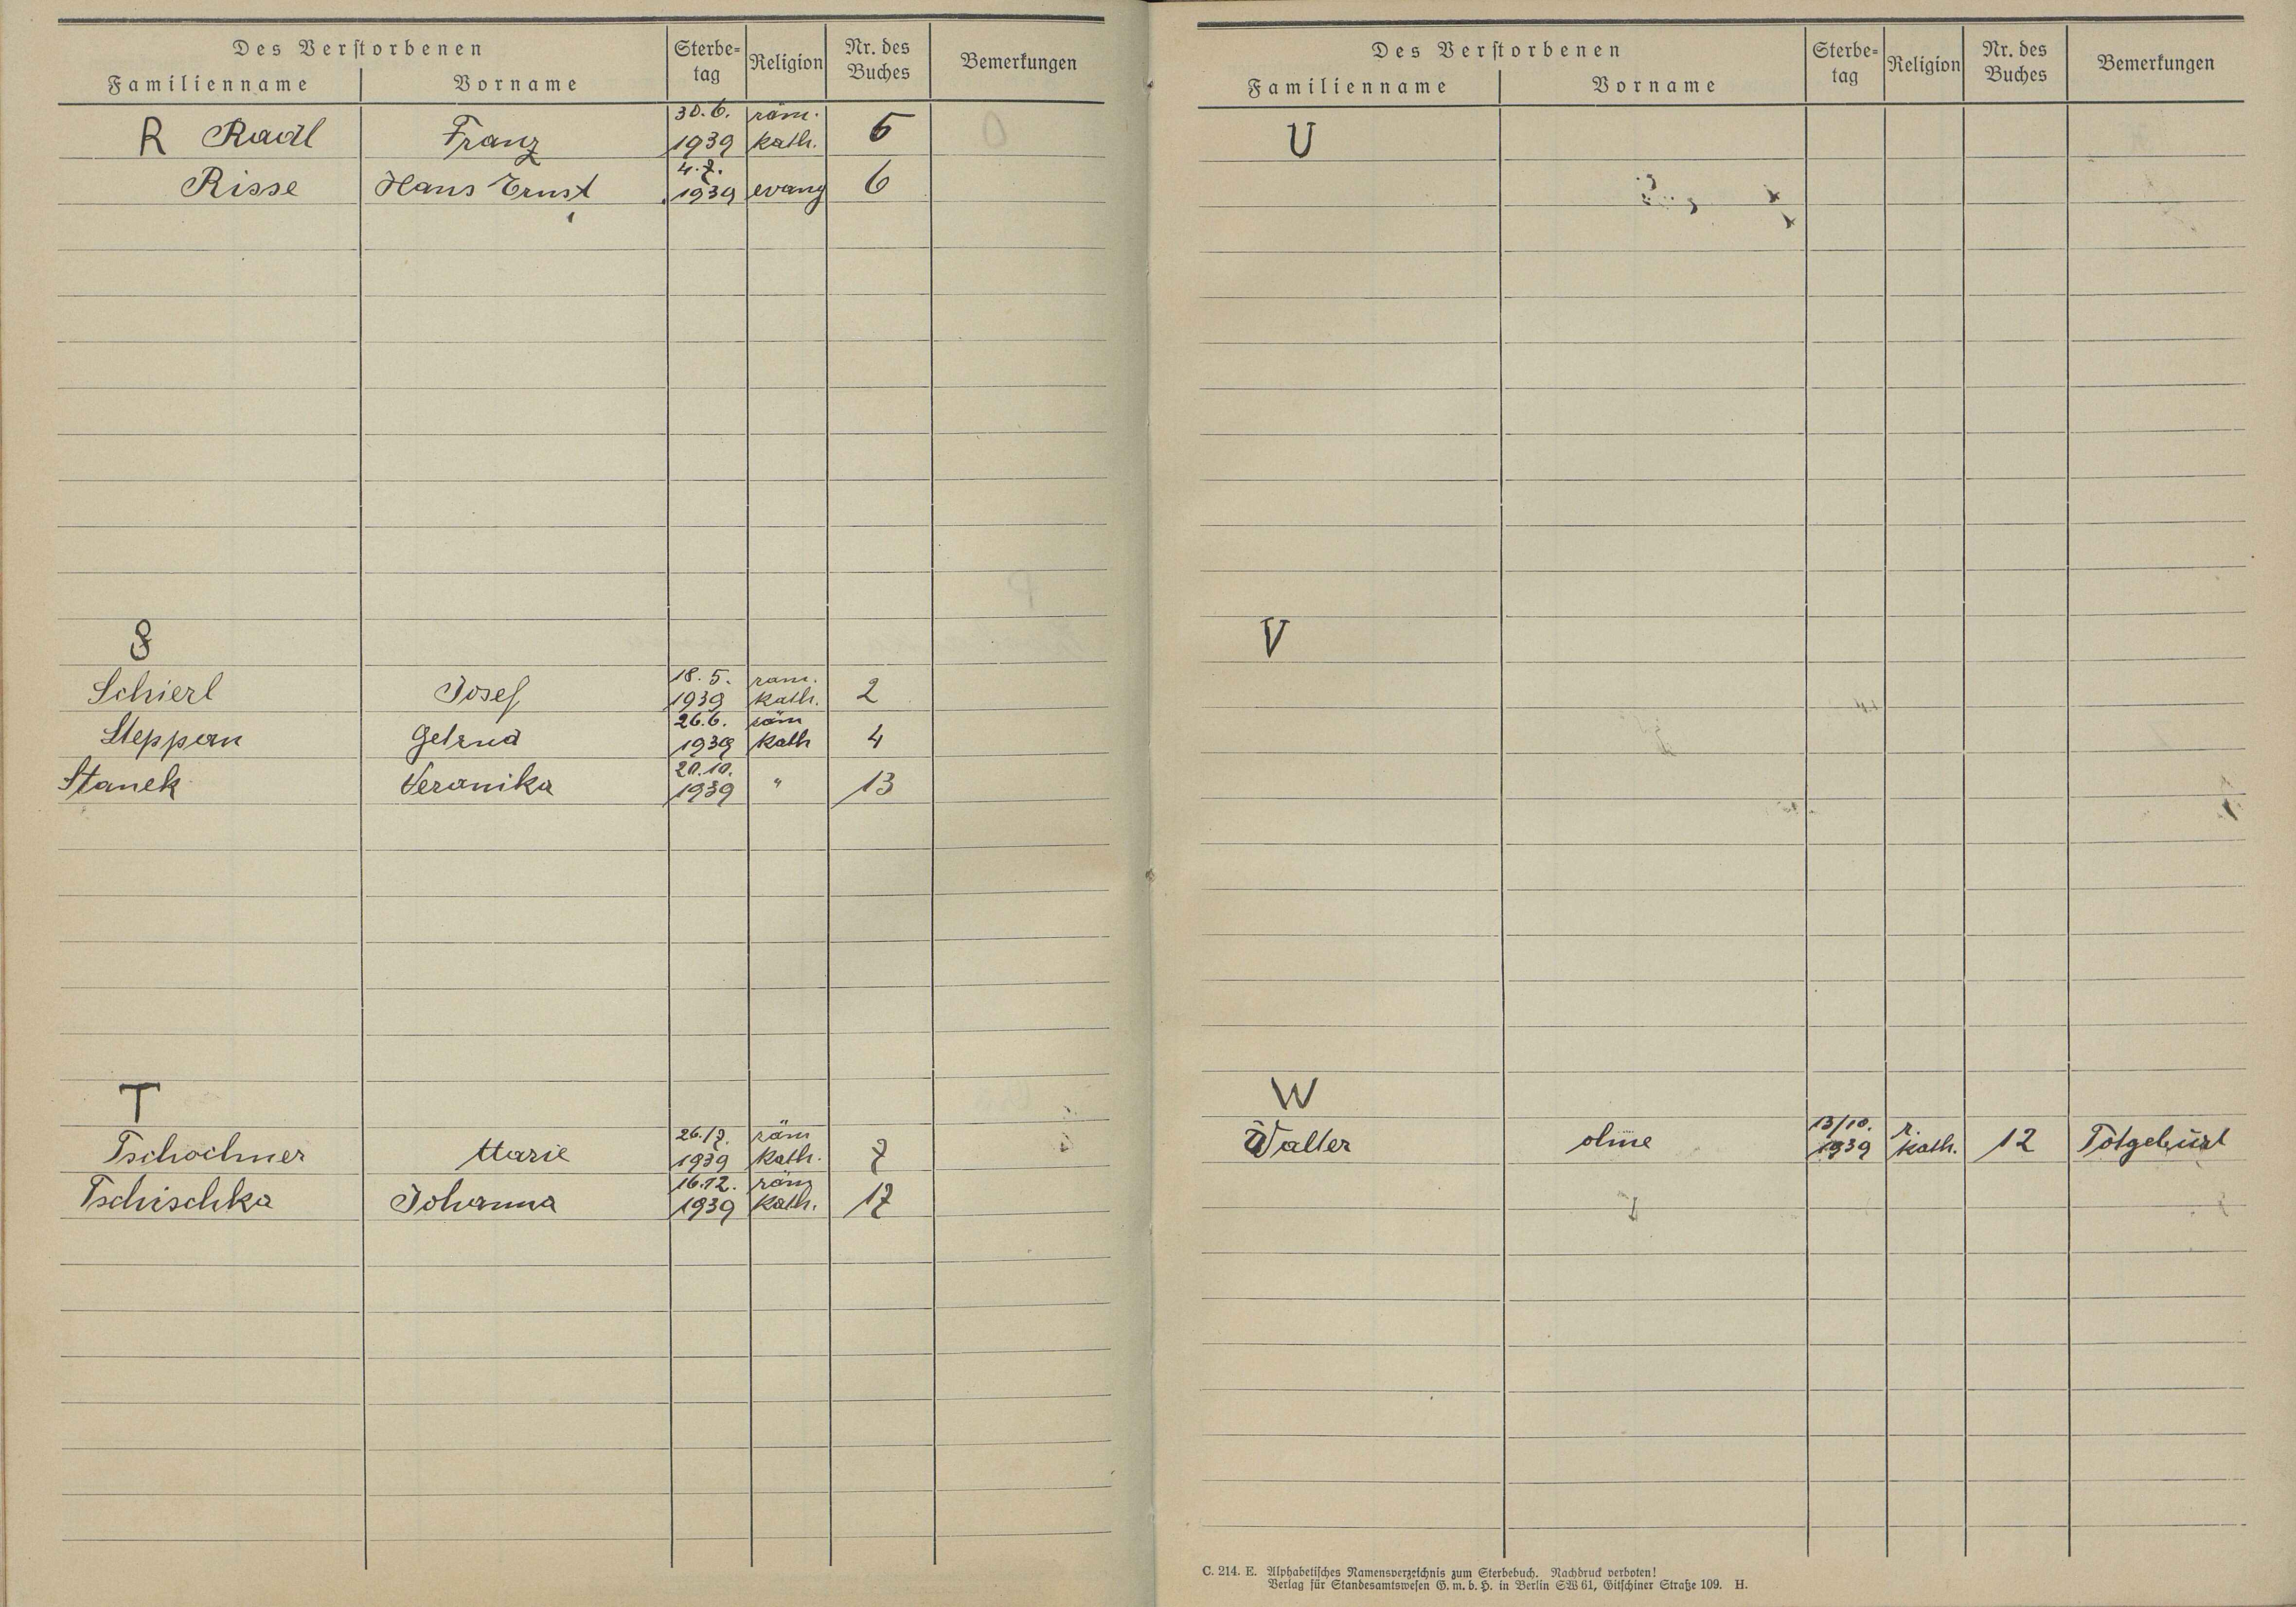 Des Verstorbenen
Familienname Vorname Sterbe-tag Religion Nr. des Buches Bemerkungen
R Radl Franz 30.6. 1939 röm. kath. 5
Risse Hans Ernst 4.7. 1939 evang 6
S
Schierl Josef 18.5. 1939 röm. kath. 2
Steppan 26.6. 1939 röm kath 4
Stanek Veronika 20.10. 1939 " 13
T
Tschochner Marie 26./7. 1939 röm kath. 7
Tschischka Johanna 16.12. 1939 röm kath. 17
Des Verstorbenen
Familienname Vorname Sterbe-tag Religion Nr. des Buches Bemerkungen
U
V
W
Walter ohne 13/10. 1939 r. kath. 12 Totgeburt
C. 214. E. Alphabetisches Namensverzeichnis zum Sterbebuch. Nachdruck verboten!
Verlag für Standesamtswesen G. m. b. H. in Berlin SW 61, Gitschiner Straße 109. H.